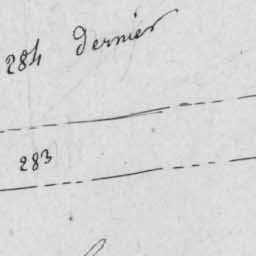 284 dernier
283